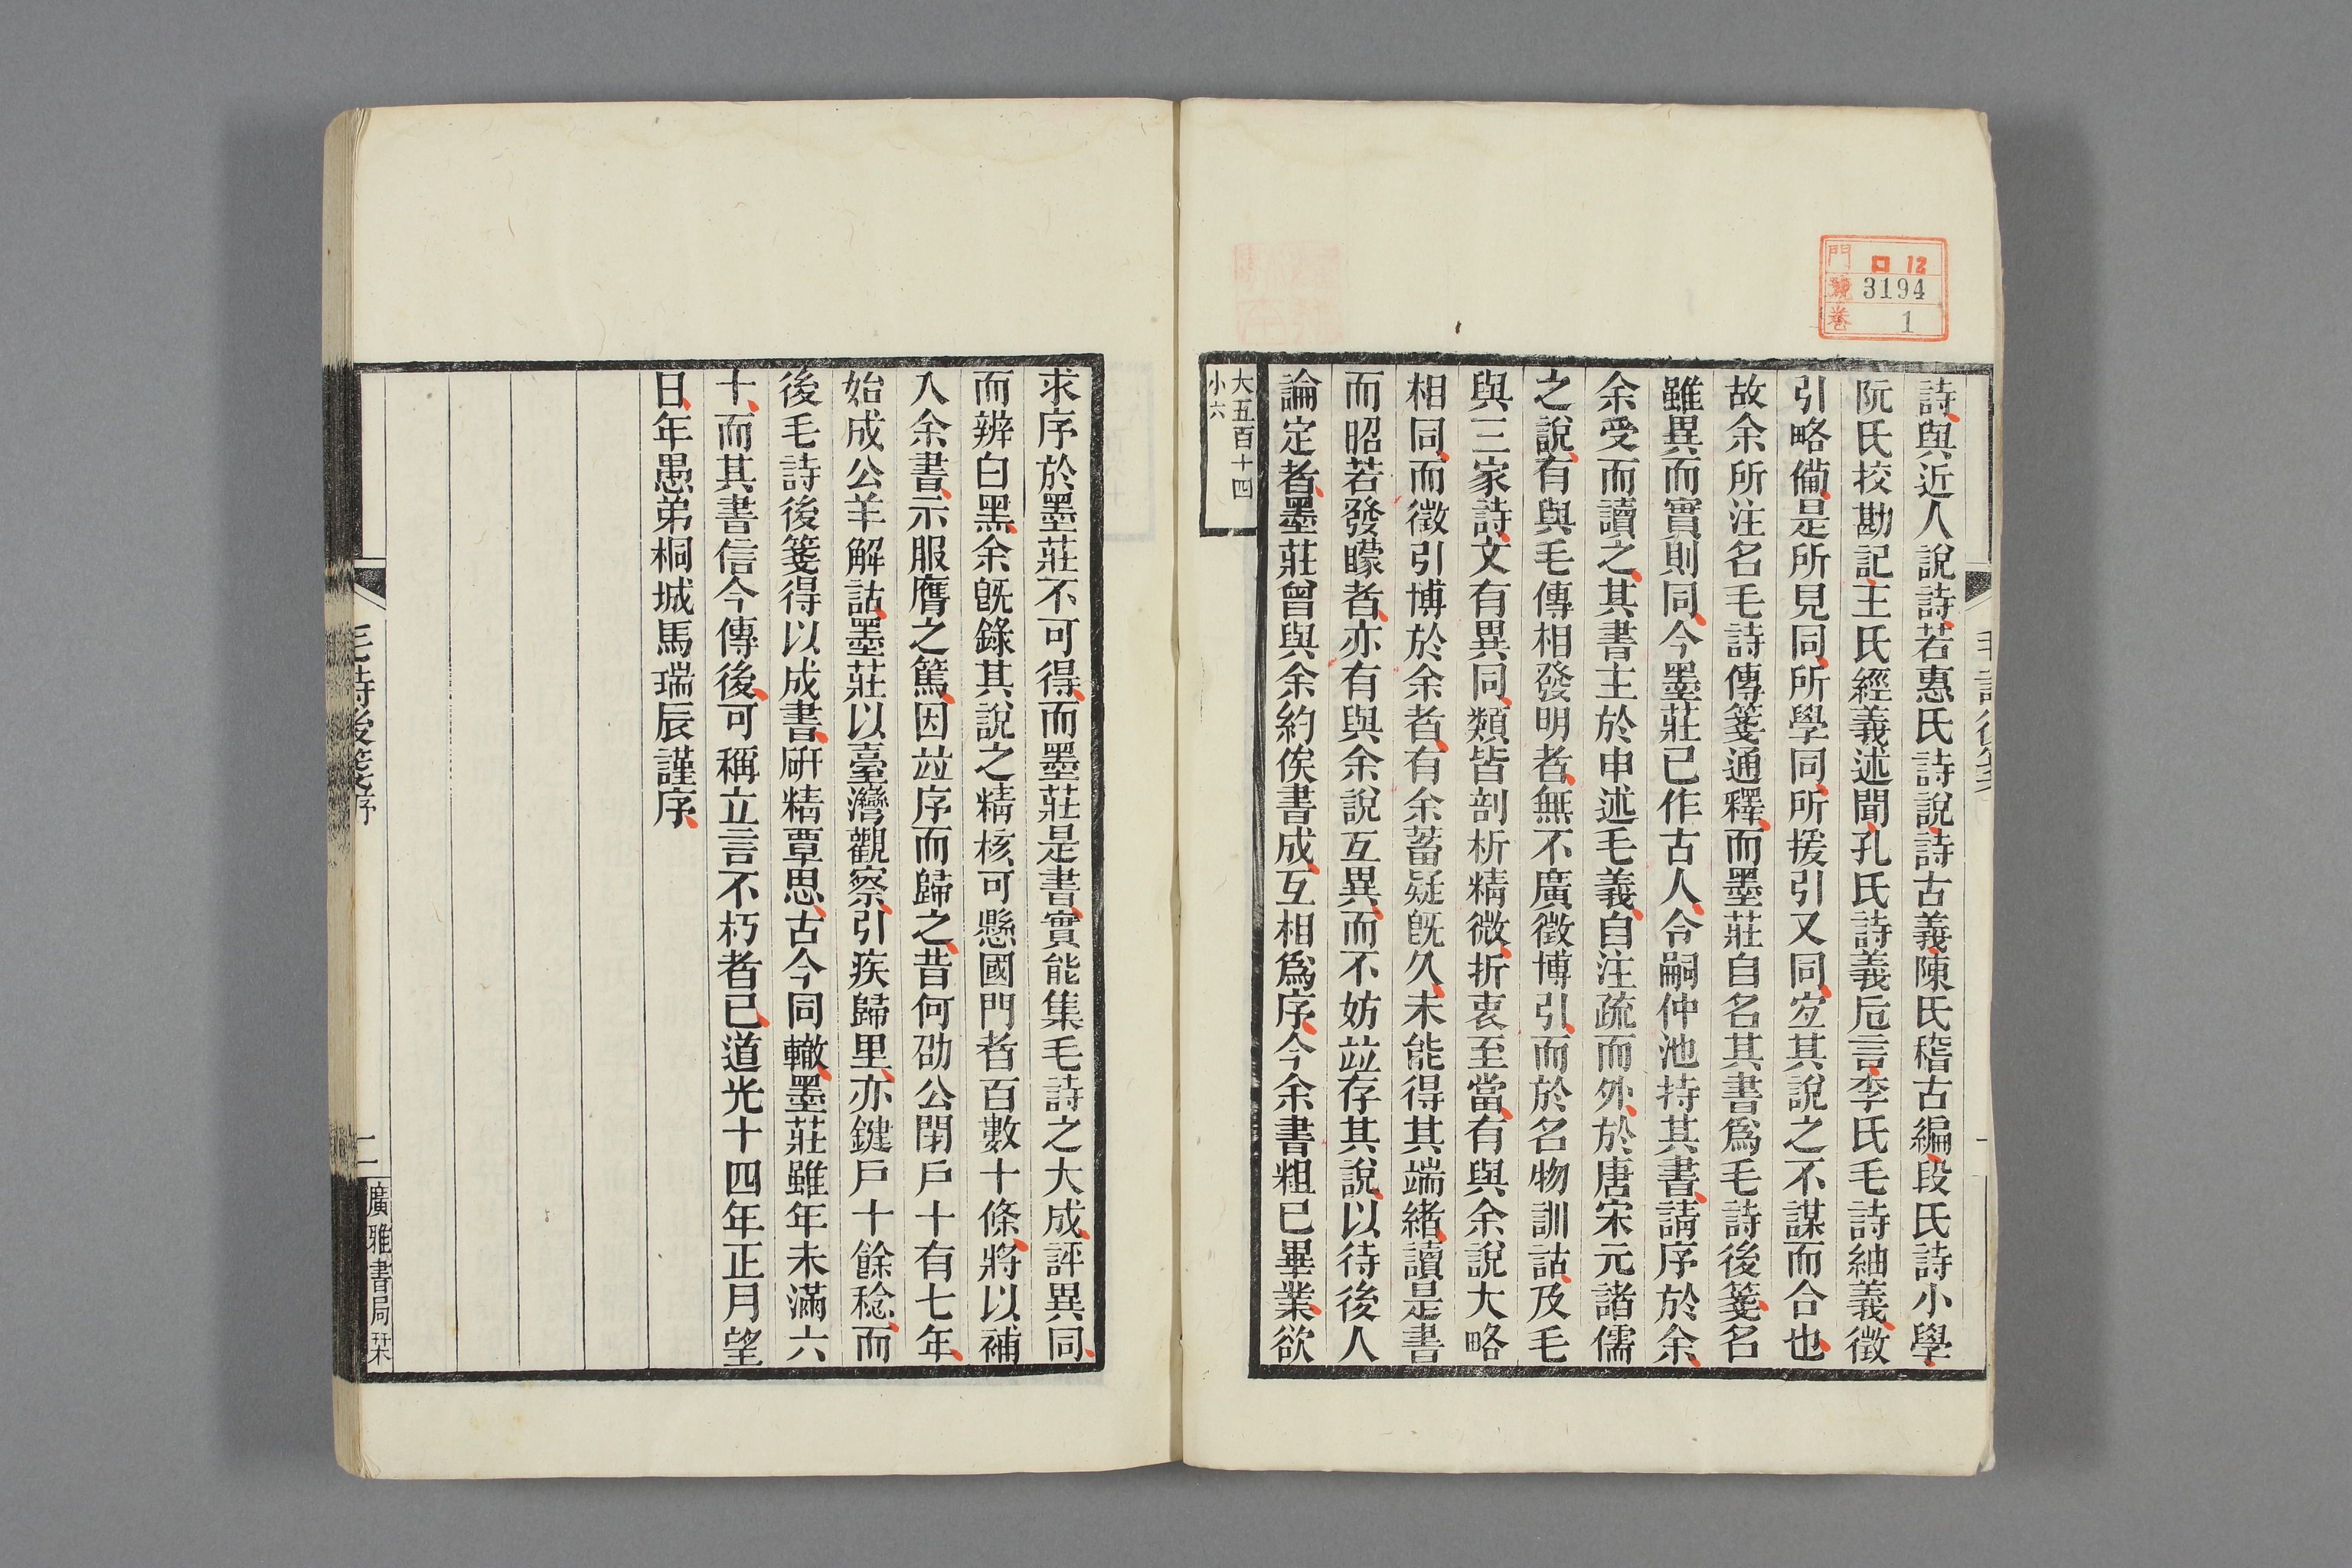 詩與近人說詩若惠氏詩說詩古義陳氏稽古編段氏詩小學
阮氏挍勘記王氏經義述聞孔氏詩義卮言李氏毛詩紬義徵
引略僃是所見同所學同所援引又同宐其說之不謀而合也
故余所注名毛詩傳箋通釋而墨莊自名其書爲毛詩後箋名
雖異而實則同今墨莊已作古人令嗣仲池持其書請序於余
余受而讀之其書主於申述毛義自注疏而外於唐宋元諸儒
之說有與毛傳相發明者無不廣徵博引而於名物訓詁及毛
與三家詩文有異同類皆剖析精微折衷至當有與余說大略
相同而徵引博於余者有余蓄疑旣久未能得其端緒讀是書
而昭若發矇者亦有與余說互異而不妨竝存其說以待後人
論定者墨莊曾與余約俟書成互相爲序今余書粗已畢業欲
大五百十四
小六
門 口 12
號 3194
卷 1
求序於墨莊不可得而墨莊是書實能集毛詩之大成評異同
而辨白黑余旣錄其說之精核可懸國門者百數十條將以補
入余書示服膺之篤因竝序而歸之昔何劭公閉戶十有七年
始成公羊解詁墨莊以臺灣觀察引疾歸里亦鍵戶十餘稔而
後毛詩後箋得以成書硏精覃思古今同轍墨莊雖年未滿六
十而其書信今傳後可稱立言不朽者已道光十四年正月望
日年愚弟桐城馬瑞辰謹序
毛詩後箋序
二
廣雅書局栞